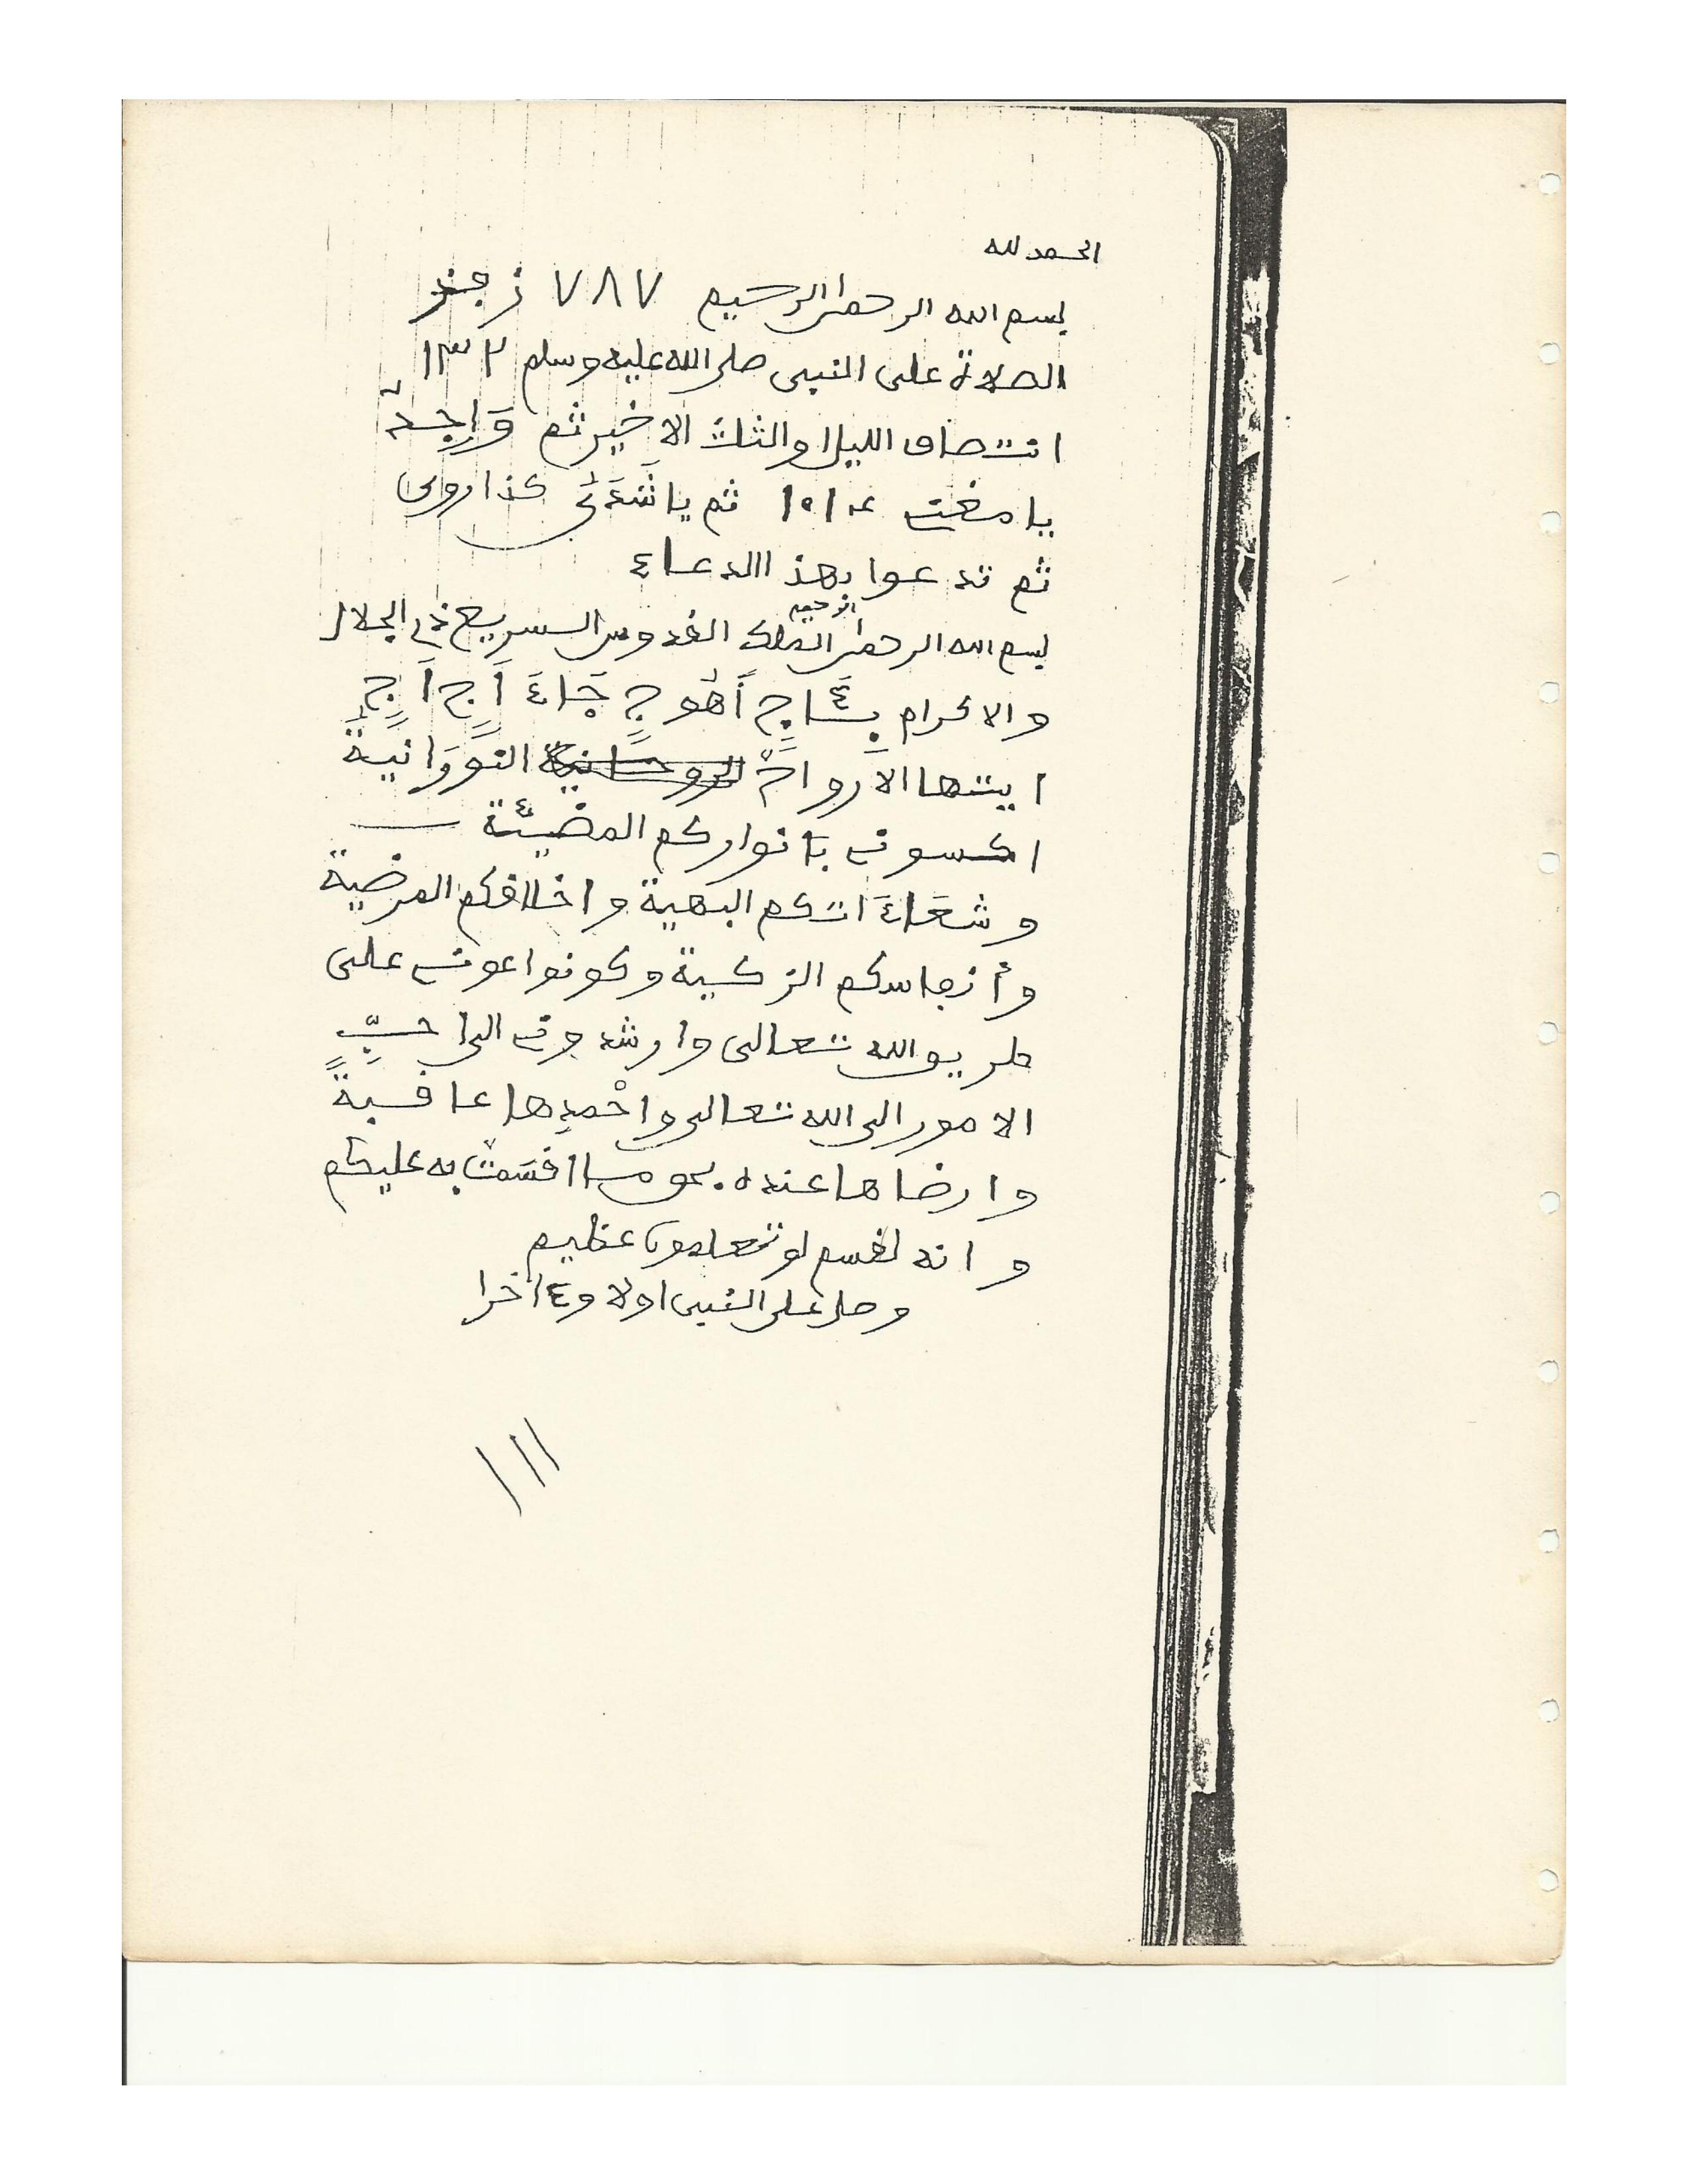 الحمد لله
بسم الله الرحمن الرحيم ٧٨٧
الصلاة على النبي صلى الله عليه وسلم ١٣٢
انتصاف الليل والثلث الاخير ثم
يا مغني ثم يا كذا روى
ثم تدعوا بهذا الدعاء
بسم الله الرحمن الرحيم الملك القدوس السريع ذي الجلال
والاكرام
ايتها الارواح النورانية
اكسوني بانواركم المضيئة
وشعاءاتكم البهية واخلاقكم المرضية
وأنفاسكم الزكية وكونوا عوني على
طريق الله تعالى وارشدوني الى احبّ
الامور الى الله تعالى واحمدها عاقبة
وارضاها عنده بحق ما اقسمت به عليكم
وانه لقسم لو تعلمون عظيم
وصل على النبي اولا وءاخرا